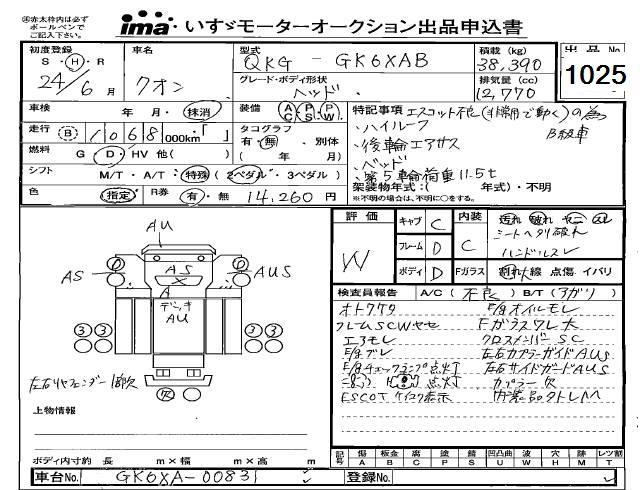 ㊟赤太枠内は必ず
ボールペンで
ご記入下さい。
ima いすゞモーターオークション出品申込書
初度登録 S・H・R 24/6月
車名 クオン
型式 QKG - GK6XAB
グレード・ボディ形状 ヘッド
積載 (kg) 38,390
排気量 (cc) 12,770
出品No. 1025
車検 年 月・抹消
装備 AC PS PW
走行 B 1068 000km・「 」
タコグラフ 有・無・別体 ( 年 月)
燃料 G D・HV 他( )
シフト M/T・A/T・特殊 (2ペダル・3ペダル)
色 指定 R券 有・無 14,260円
特記事項 エスコット不良(非常用で動く)の為 B級車
・ハイルーフ
・後輪エアサス
・ベッド
・第5輪荷重11.5t
架装物年式:( 年式)・不明
※不明の場合は、不明に○をする。
評価 W
キャブ C
フレーム D
ボディ D
内装 C
Fガラス
汚れ 破れ ヤニ スレ
シートヘタリ破れ
ハンドルスレ
割れ 線 点傷 イバリ
検査員報告 A/C(不良) B/T(アガリ)
オトワケ
フレームSCWヤセ
エアモレ
E/gブレ
E/gチェックランプ点灯
点灯
ESCOT 表示
E/gオイルモレ
Fガラスワレ大
クロスメンバーSC
左右カプラーガイドAUS
左右サイドガードAUS
カプラー欠
内装品クトレM
AU
AS
AS
AUS
A
デッキ
AU
3 3
3 3
左右リヤフェンダー1部欠
欠
上物情報
ボディ内寸約 長 m×幅 m×高 m
記号 傷A 板金B 腐C 塗P 錆S 凹凸曲U 波W 穴H 跡M レツ割T
車台No. GK6XA-00831
登録No.